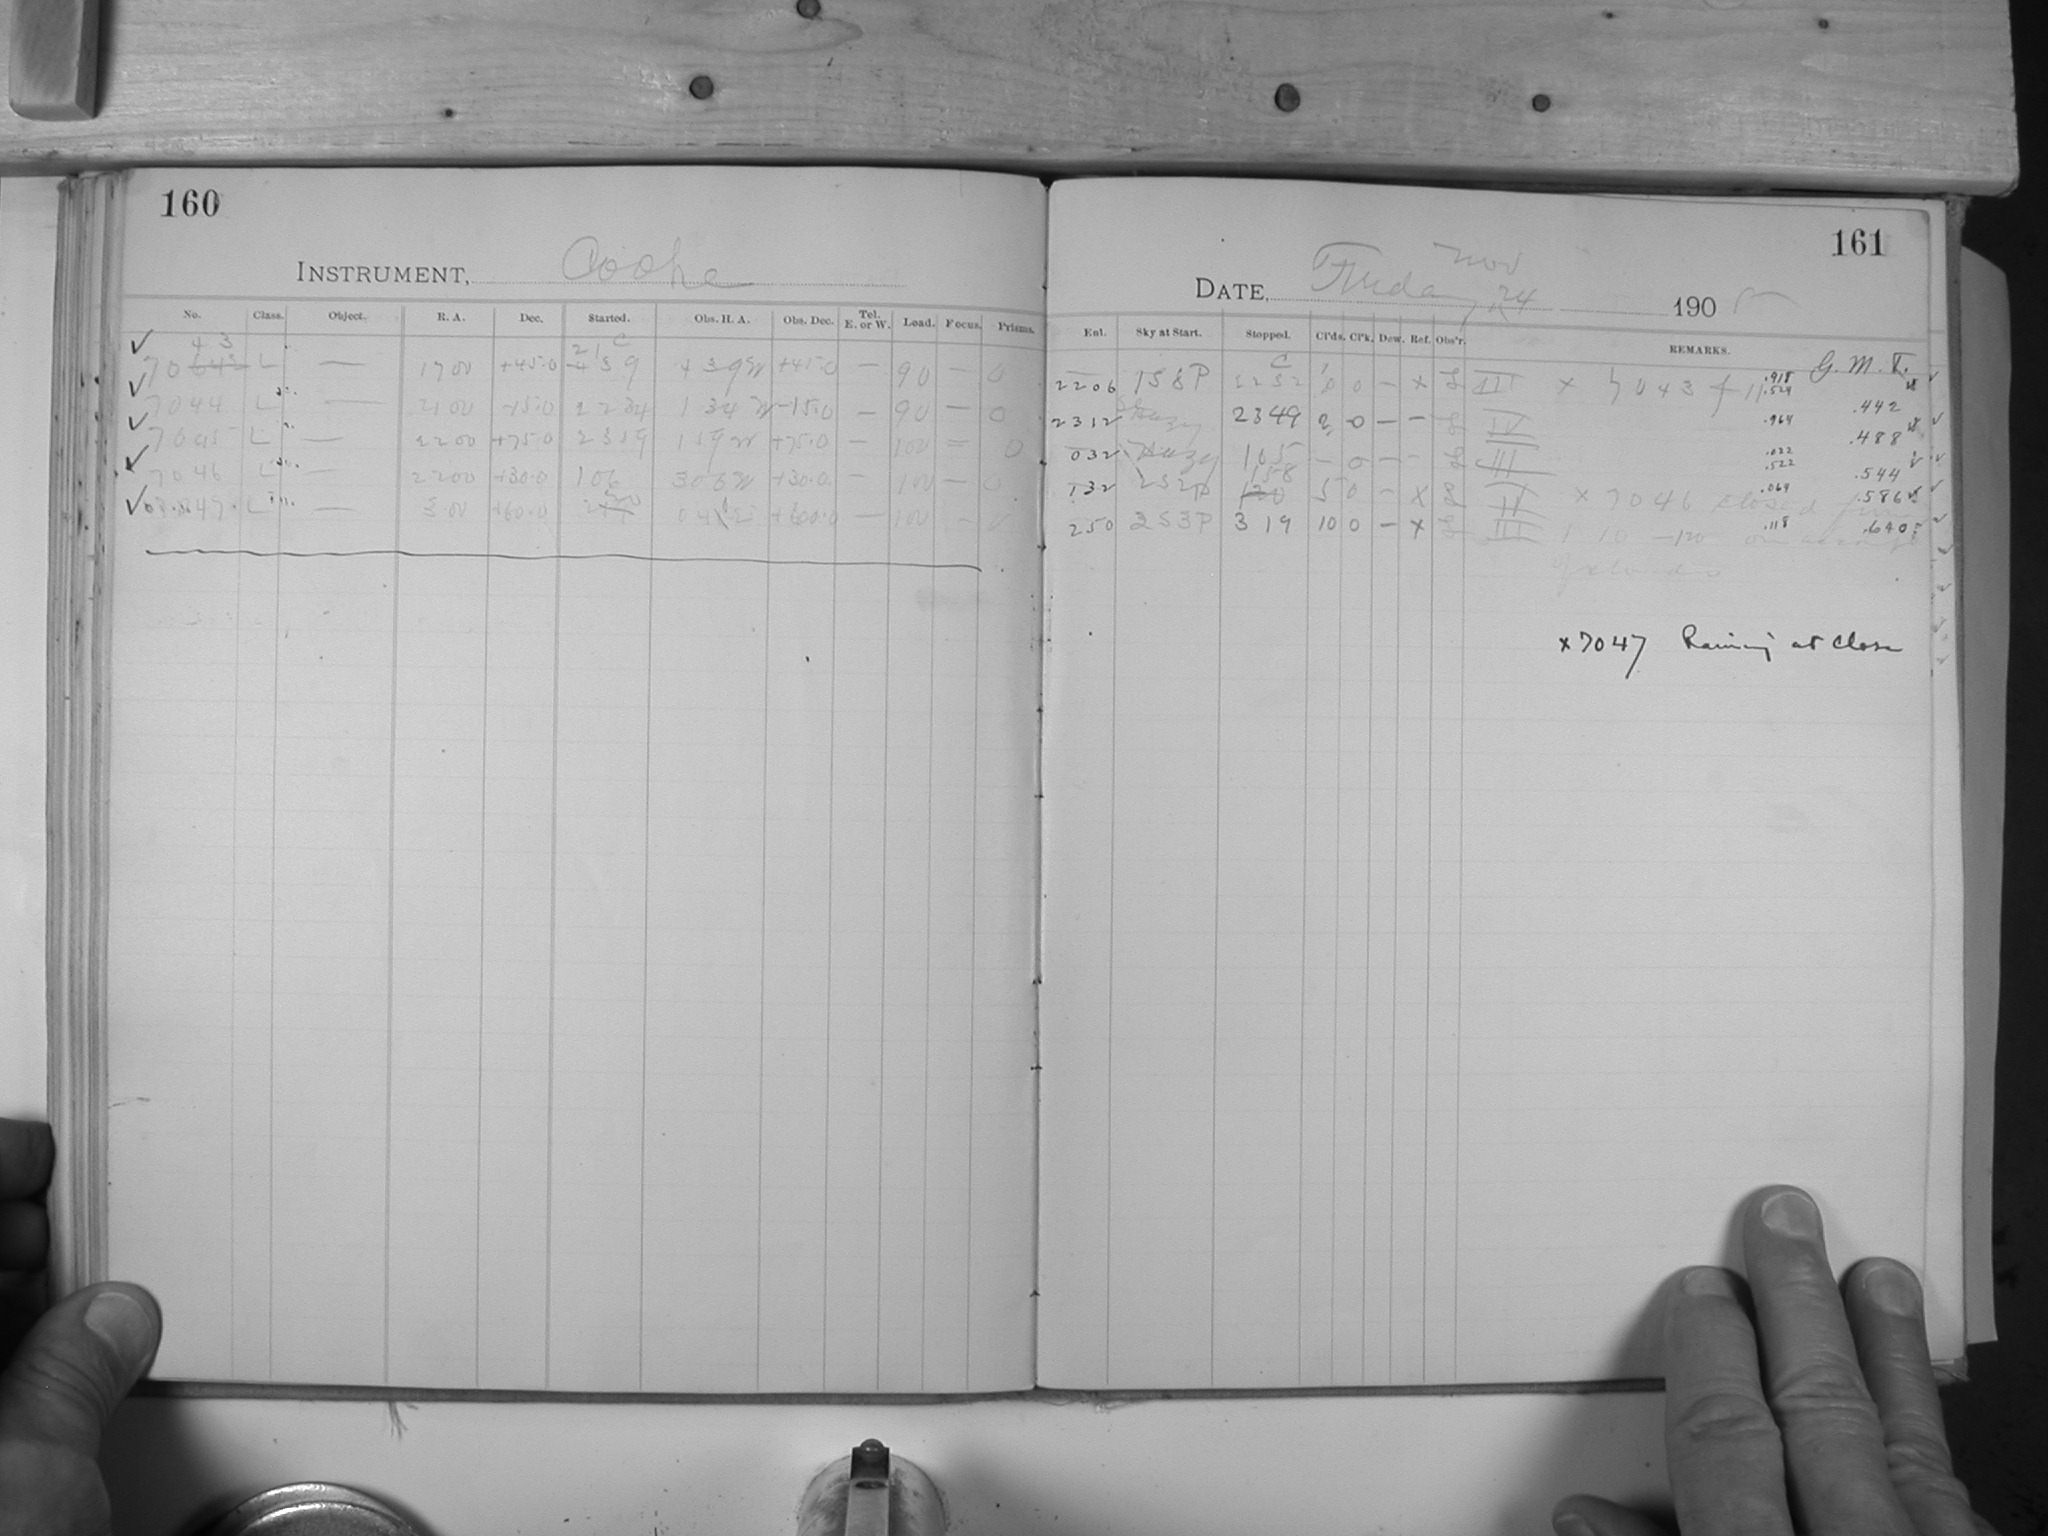 160
INSTRUMENT, Cooke
No. Class. Object. R. A. Dec. Started. Obs. H. A. Obs. Dec. Tel. E. or W. Lead. Focus. Prisms.
43 21 C
70 L — 17 00 +45.0 439 4 39 W +45.0 — 90 — 0
7044 L — 21 00 -15.0 2234 1 34 W -15.0 — 90 — 0
7045 L — 2200 +75.0 2319 1 59 W +75.0 — 100 — 0
7046 L — 2200 +30.0 106 3 06 W +30.0 — 100 — 0
47 L — 3.00 +60.0 — 100 —
161
DATE, Friday Nov 24 1905
Ent. Sky at Start. Stopped. Cl'ds. Cl'k. Dew. Ref. Obs'r. REMARKS. G. M. T.
2206 1 S 8 P 2232 0 — x L III x 7043 .918 .529
2312 Hazy 2349 2 0 — — L IV .964 .442
032 Hazy 105 — 0 — — L III .022 .522 .488
132 2 S 2 P 158 5 0 — x L IV x 7046 closed from .064 .544 .586
250 2 S 3 P 3 19 10 0 — x L III 1 10 — 120 on account .118 .640
of clouds
x 7047 Raining at close